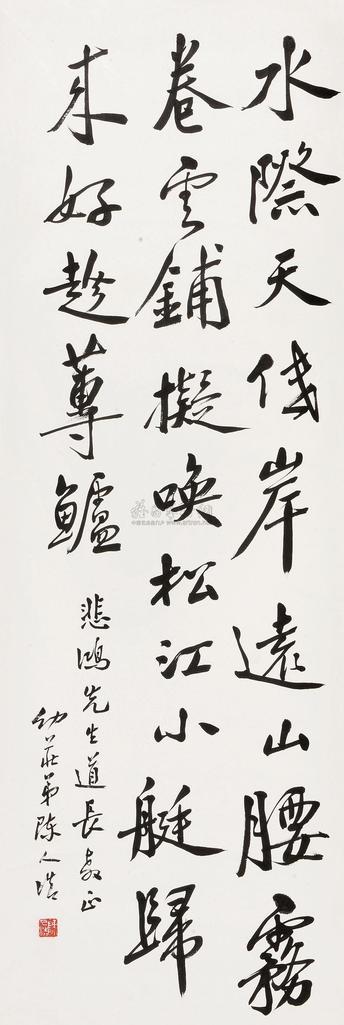 水際天低岸遠山腰霧
卷雲鋪擬喚松江小艇歸
來好趁蓴鱸
悲鴻先生道長教正
幼莊弟陳人浩